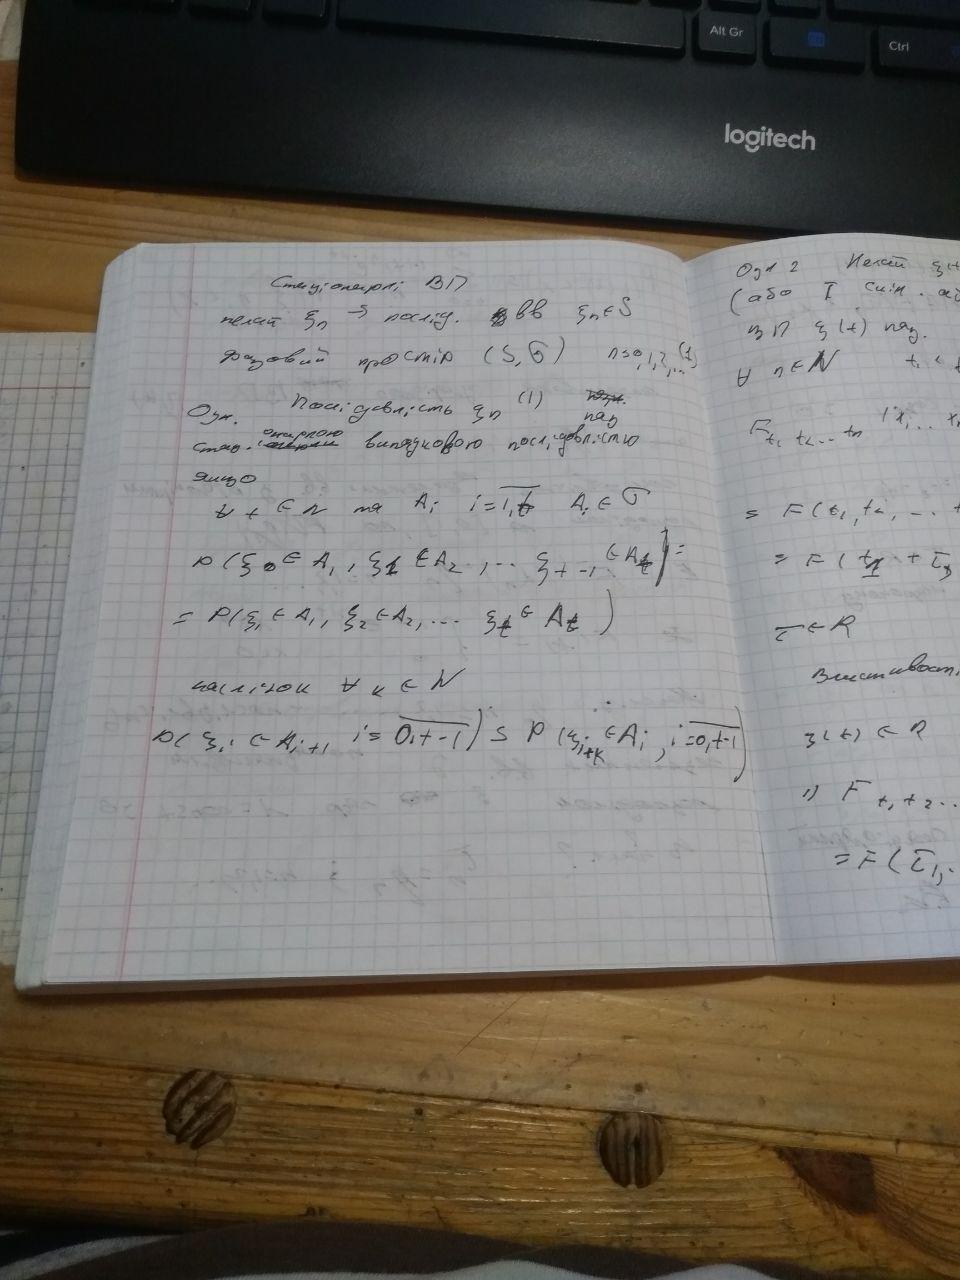 Alt Gr
Ctrl
logitech
Стаціонарні ВП
нехай ξn → послід. ВВ ξn∈S
Фазовий простір (S, σ) n=0,1,2,... (1)
Озн. Послідовність ξn (1) наз
стаціонарною випадковою послідовністю
якщо
∀ t ∈ N та Ai i=1,t Ai ∈ σ
P(ξ0 ∈ A1, ξ1 ∈ A2, ... ξt-1 ∈ At) =
= P(ξ1 ∈ A1, ξ2 ∈ A2, ... ξt ∈ At)
наслідок ∀ k ∈ N
P(ξi ∈ Ai+1 i=0,t-1) = P(ξi+k ∈ Ai, i=0,t-1)
Озн 2 Нехай ξ(t
(або
ВП ξ(t) наз.
∀ n∈N t1,
F t1 t2... tn (x1, ... xn
= F(t1, t2, ... t
= F(t1 + τ,
τ ∈ R
Властивост
ξ(t) ∈ R
1) F t1, t2...
= F(τ1,